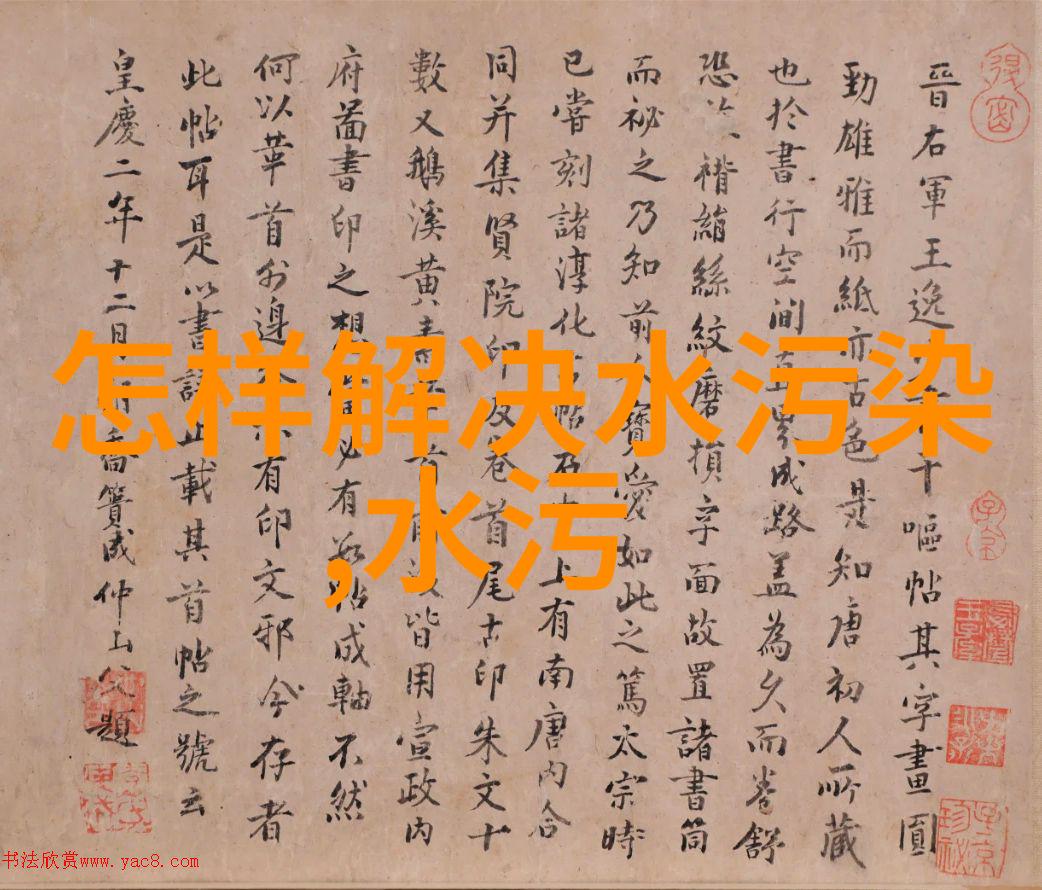 怎样解决水污染
,水污
晉右軍王逸十嘔帖其字畫圓
勁雄雅而紙亦古色是知唐初人所藏
也於書行空间直界成路蓋為久而卷舒
恐褙絹絲紋磨損字面故置諸書筒
而祕之乃知前人寶愛如此之篤太宗時
已嘗刻諸淳化帖上有南唐内合
同并集賢院印及卷首尾古印朱文十
數又鵝溪黄皆用宣政内
府啚書印之想必有帖成軸不然
何以華首外邊有印文邪今存者
此帖耳是以書訣止載其首帖之號云
皇慶二年十二月喬簣成仲山父題
书法欣赏www.yac8.com